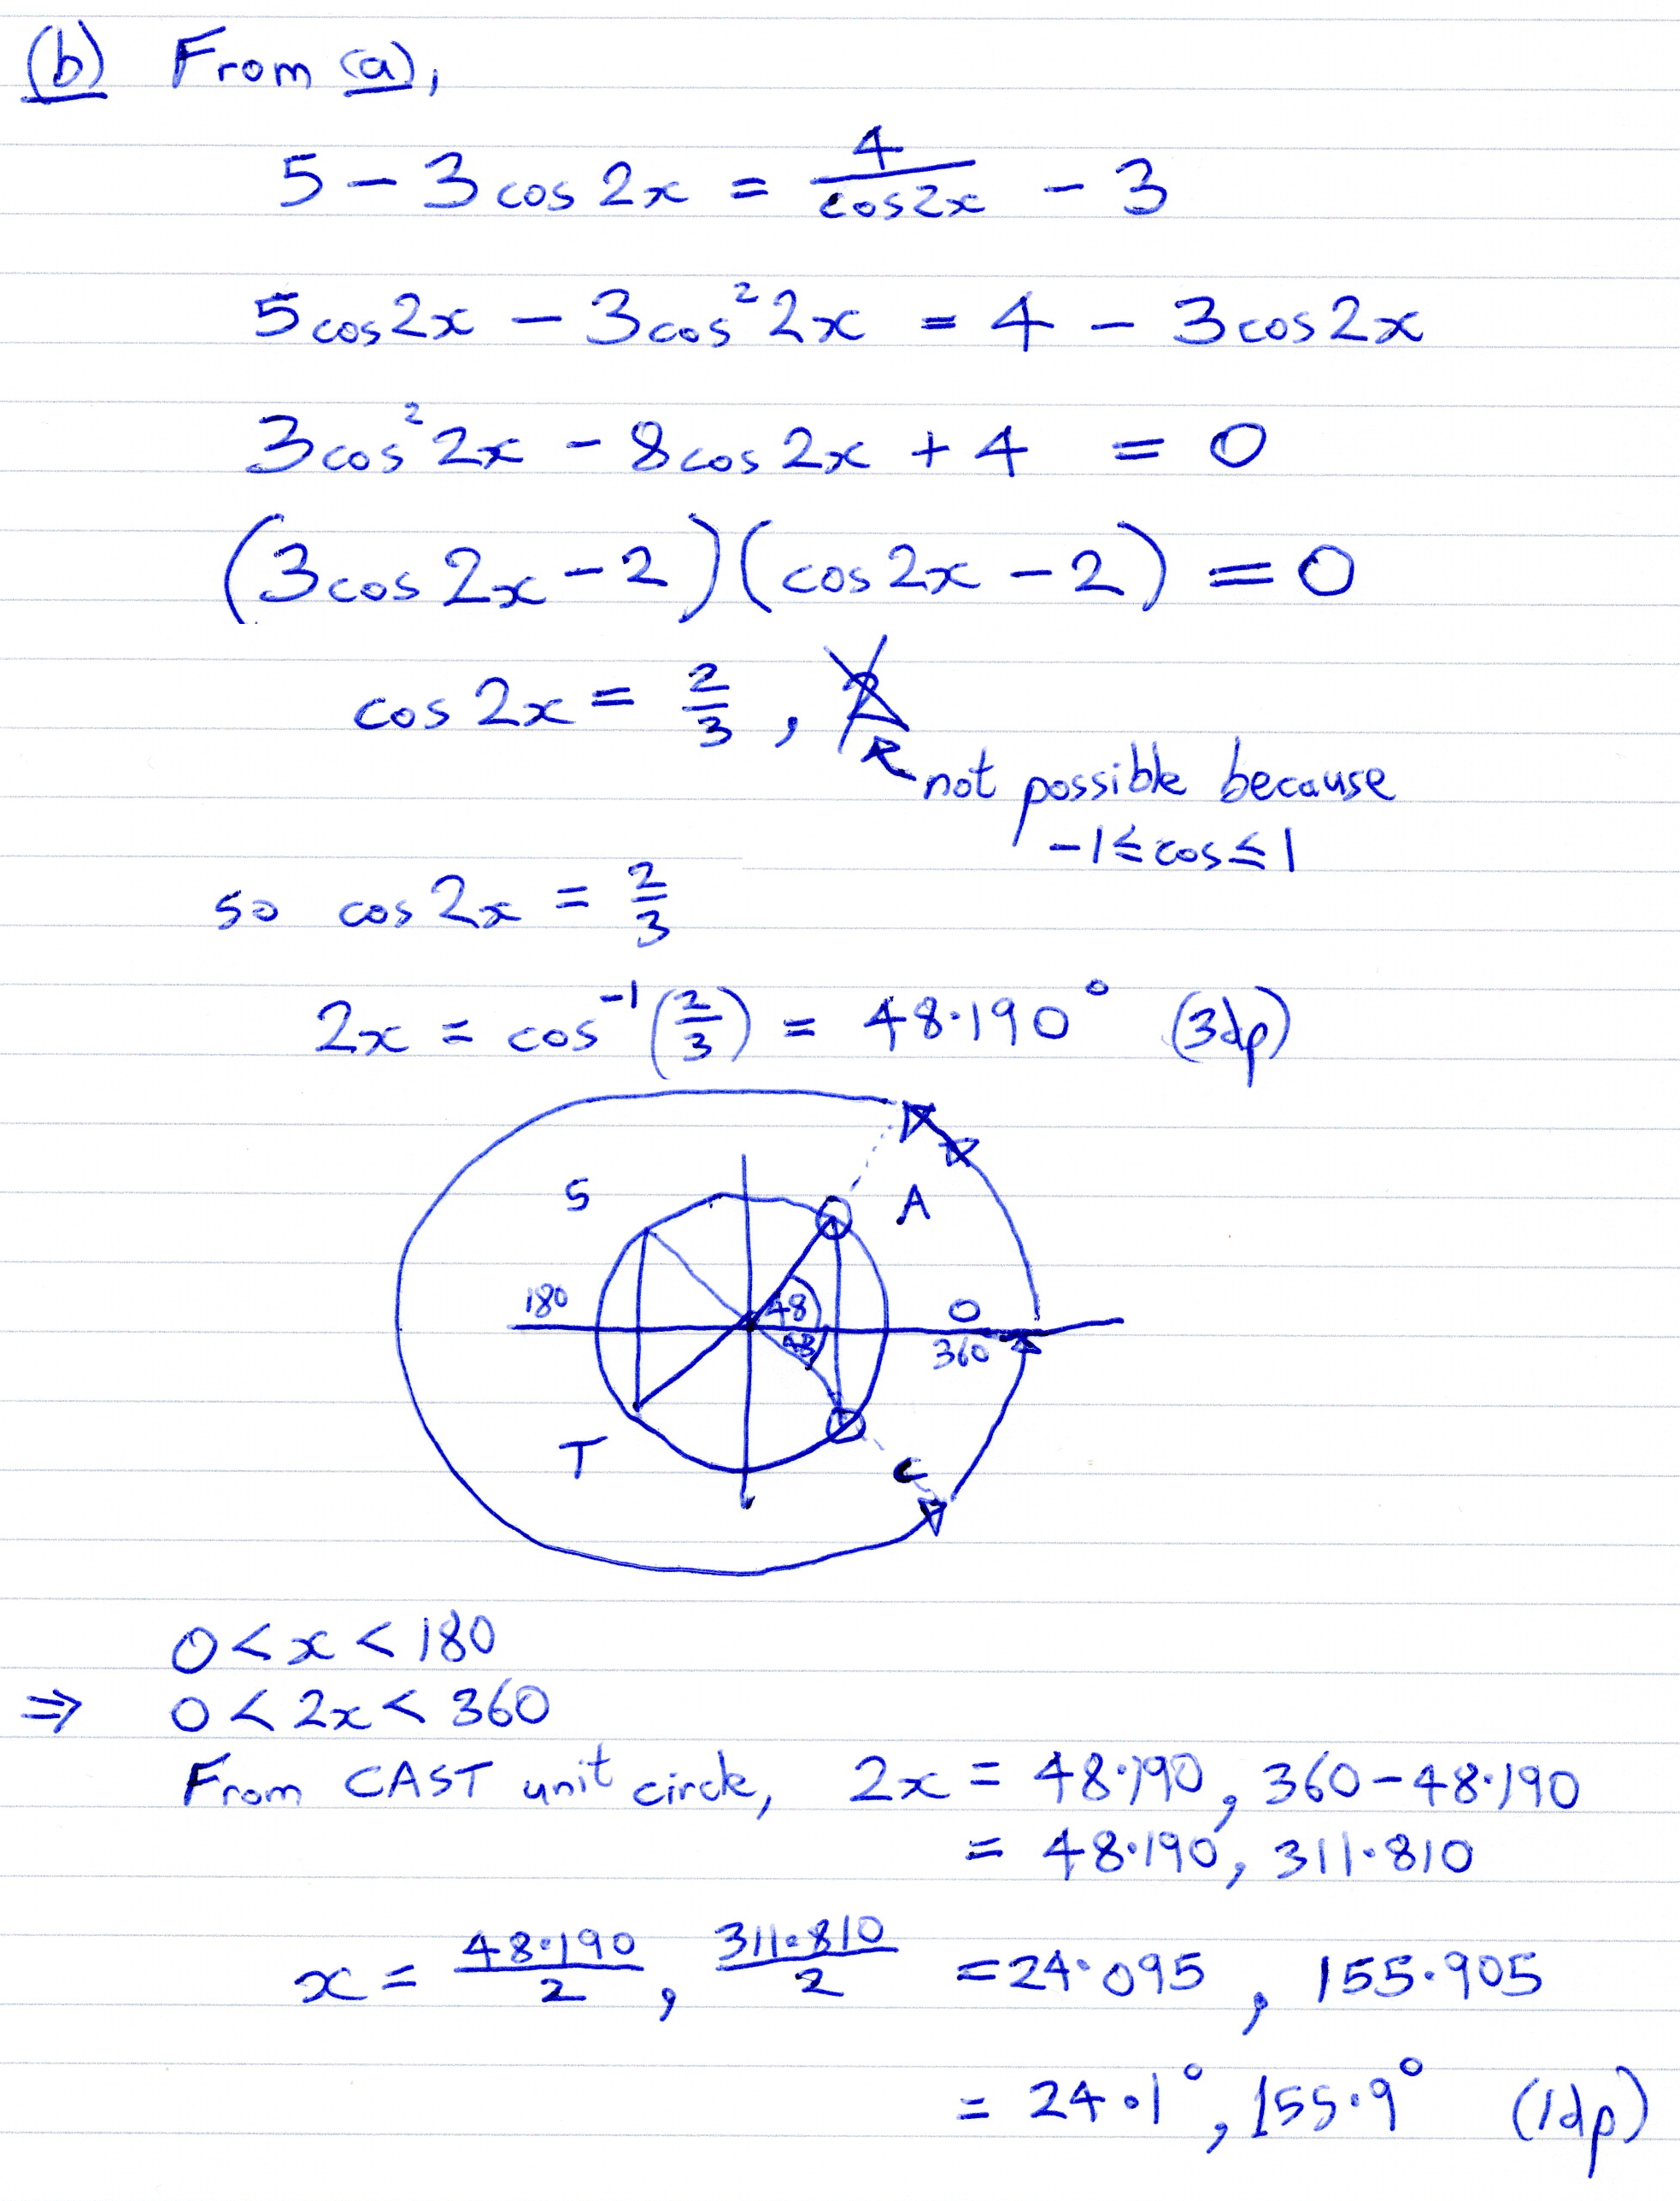 (b) From (a),
5 - 3cos 2x = 4/cos2x - 3
5cos2x - 3cos²2x = 4 - 3cos2x
3cos²2x - 8cos2x + 4 = 0
(3cos2x - 2)(cos2x - 2) = 0
cos2x = 2/3, 2
not possible because
-1≤cos≤1
so cos2x = 2/3
2x = cos⁻¹(2/3) = 48.190° (3dp)
S A
180 48 0
48 360
T C
0 < x < 180
⇒ 0 < 2x < 360
From CAST unit circle, 2x = 48.190, 360-48.190
= 48.190, 311.810
x = 48.190/2, 311.810/2 = 24.095, 155.905
= 24.1°, 155.9° (1dp)